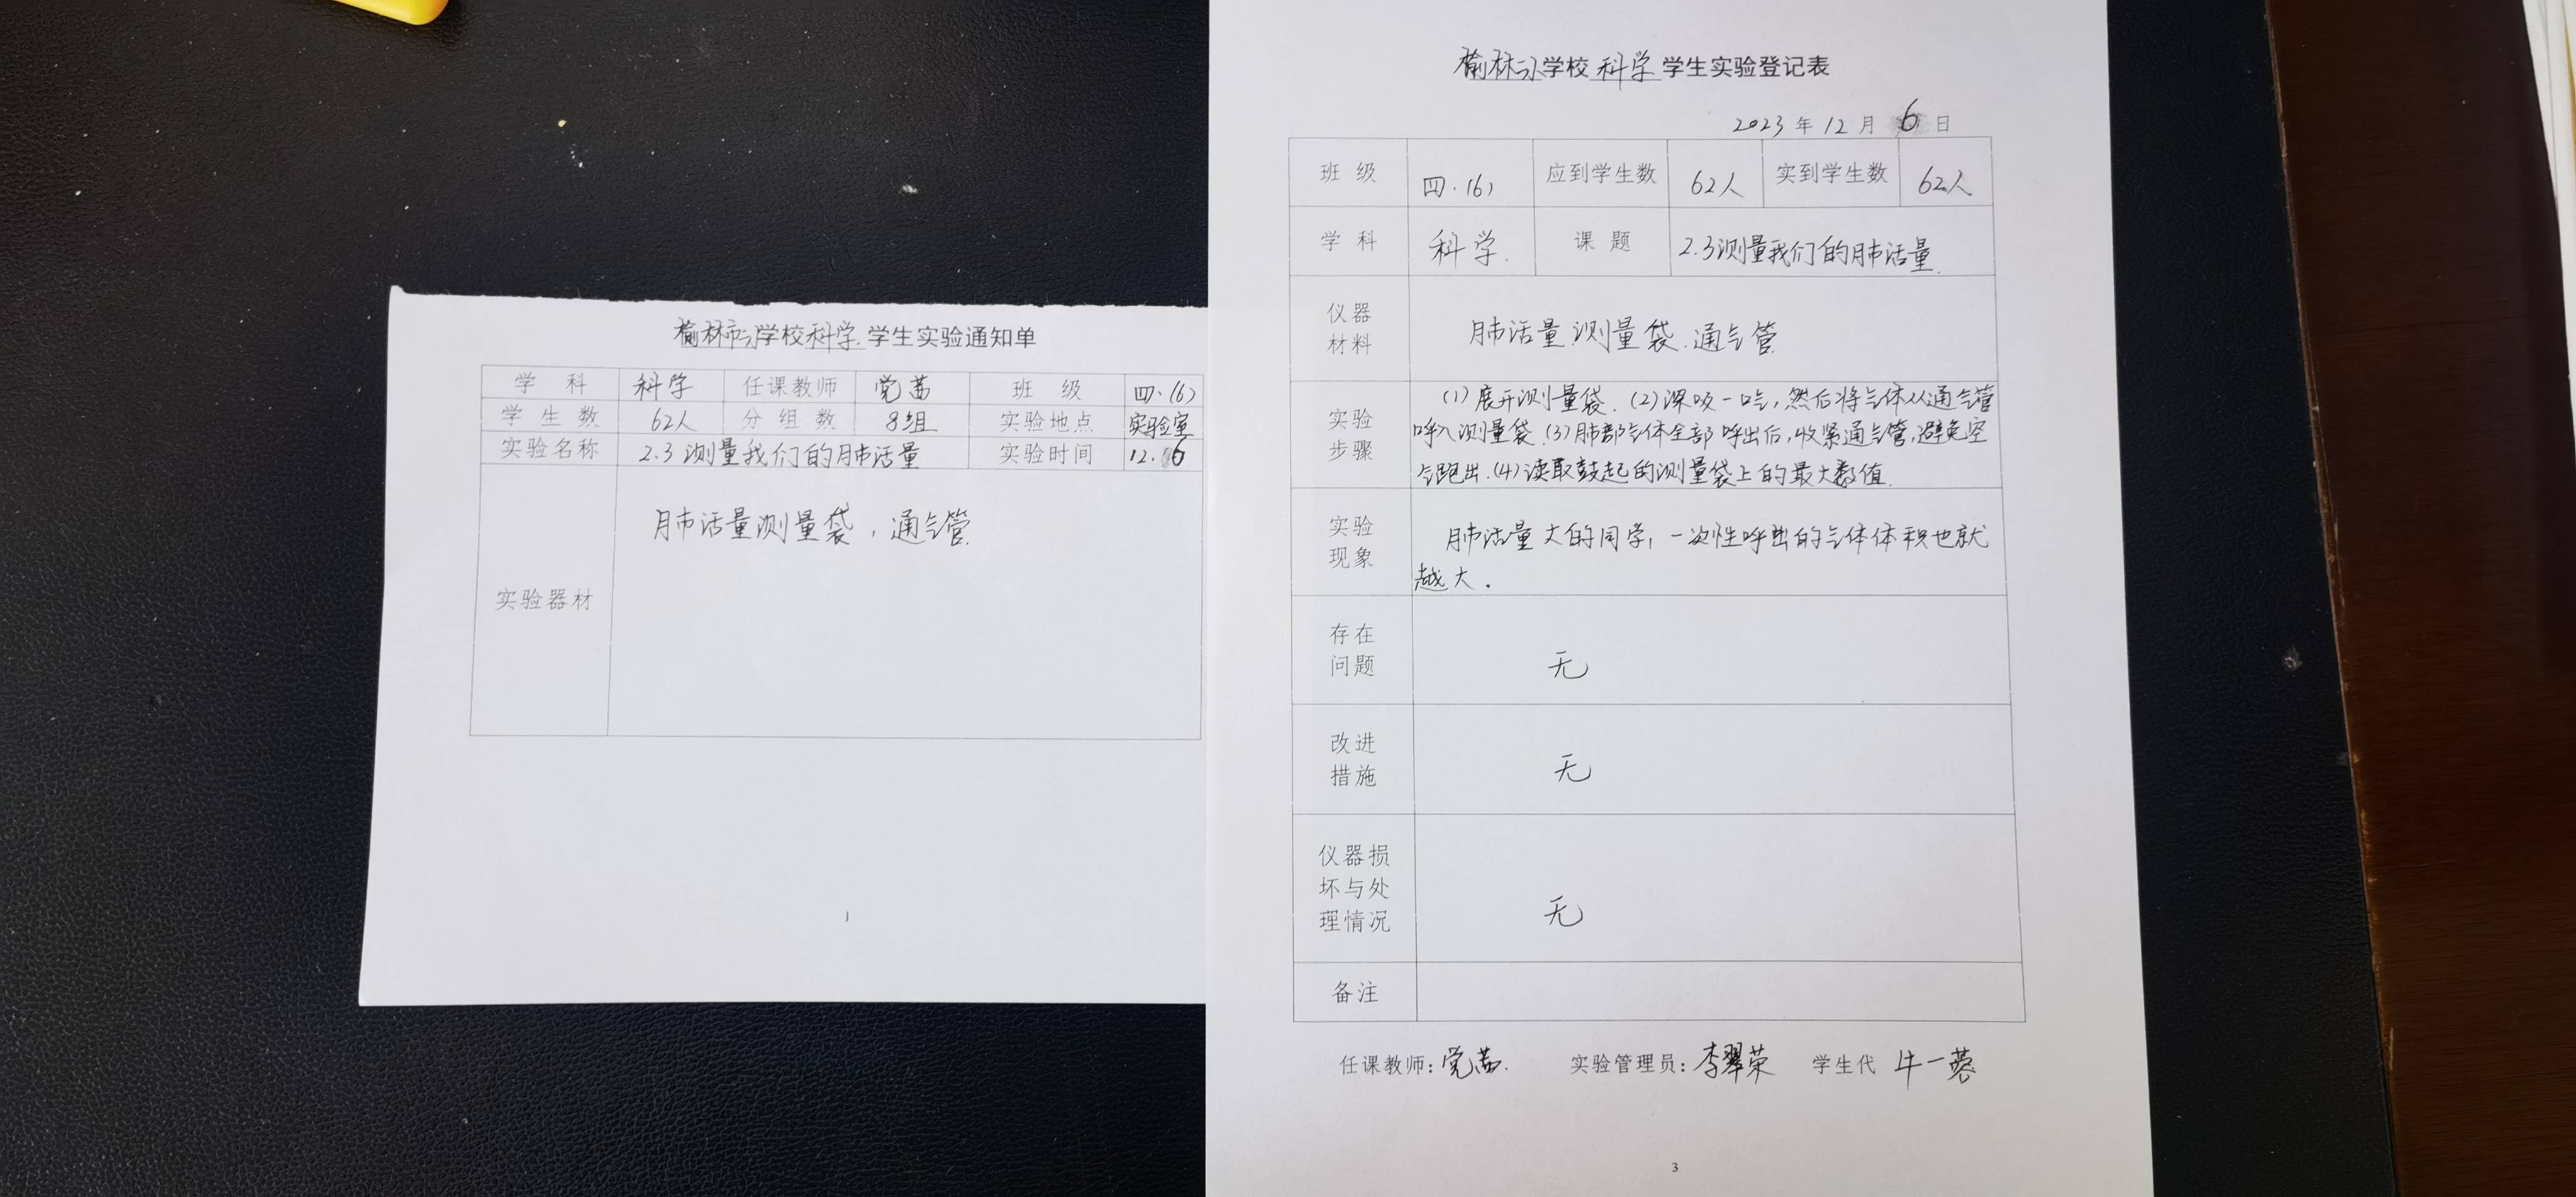 榆林市小学校科学学生实验通知单
学 科 科学 任课教师 党茜 班 级 四.(6)
学 生 数 62人 分 组 数 8组 实验地点 实验室
实验名称 2.3 测量我们的肺活量 实验时间 12.6
实验器材 肺活量测量袋,通气管
1
学校 科学 学生实验登记表
2023 年 12 月 6 日
班 级 四.(6) 应到学生数 62人 实到学生数 62人
学 科 科学. 课 题 2.3测量我们的肺活量.
仪器
材料
肺活量测量袋.通气管
实验
步骤
(1)展开测量袋.(2)深吸一口气,然后将气体从通气管
呼入测量袋.(3)肺部气体全部呼出后,收紧通气管,避免空
气跑出.(4)读取鼓起的测量袋上的最大数值.
实验
现象
肺活量大的同学,一次性呼出的气体体积也就
越大.
存在
问题
无
改进
措施
无
仪器损
坏与处
理情况
无
备注
任课教师:党茜. 实验管理员:李翠荣 学生代 牛一蓉
3